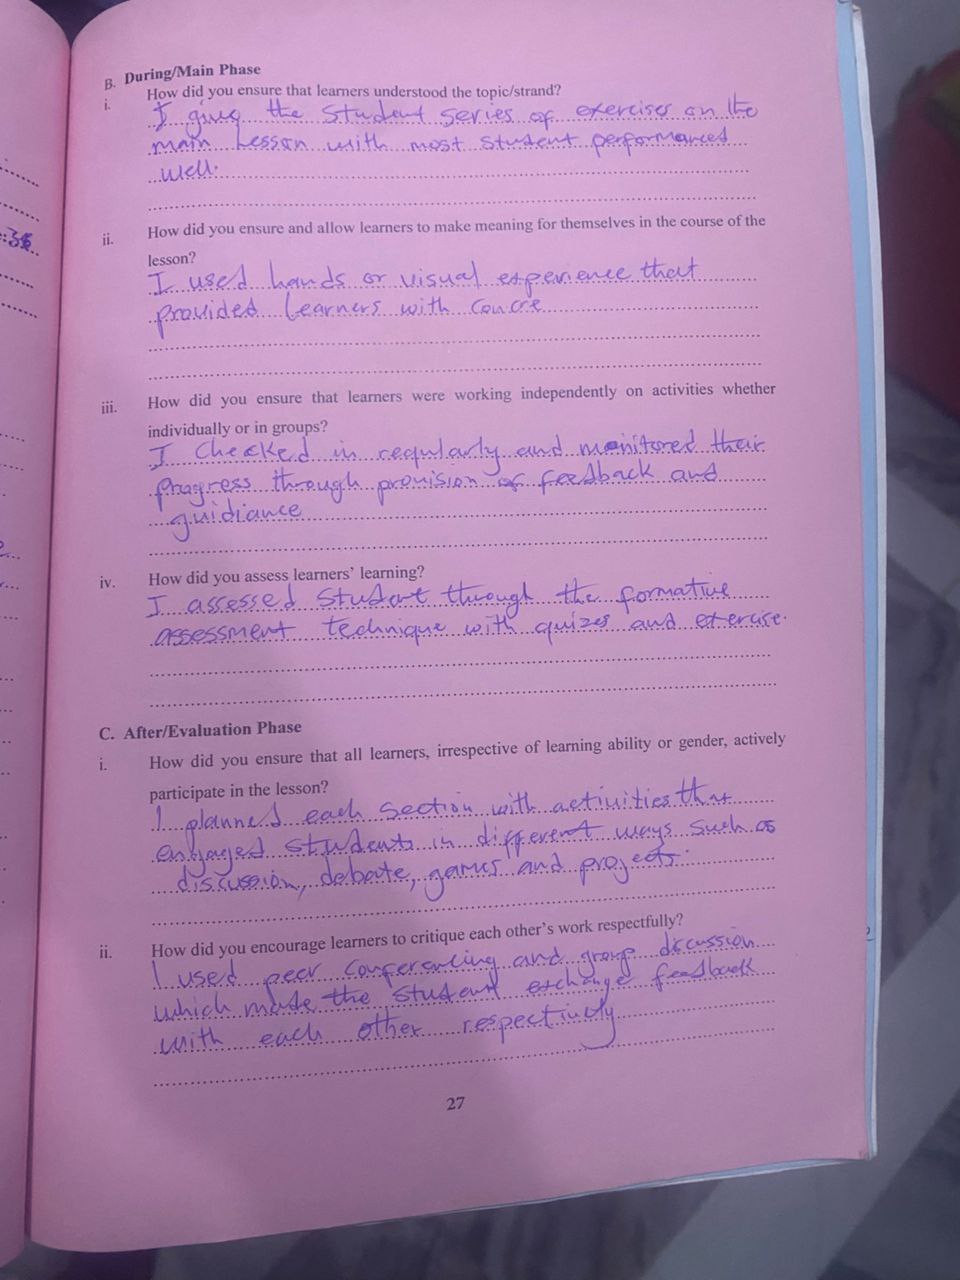 B. During/Main Phase
i. How did you ensure that learners understood the topic/strand?
I giving the student series of exercises on the
main Lesson with most student performanced
well.
ii. How did you ensure and allow learners to make meaning for themselves in the course of the
lesson?
I used hands or visual experience that
provided Learners with concre
iii. How did you ensure that learners were working independently on activities whether
individually or in groups?
I checked in regularly and monitored their
progress through provision of feedback and
guidiance
iv. How did you assess learners' learning?
I assessed student through the formative
assessment technique with quizes and exercise.
C. After/Evaluation Phase
i. How did you ensure that all learners, irrespective of learning ability or gender, actively
participate in the lesson?
I planned each section with activities that
engaged students in different ways such as
discussion, debate, games and projects.
ii. How did you encourage learners to critique each other's work respectfully?
I used peer conferencing and group discussion
which made the student exchange feedback
with each other respectively
27